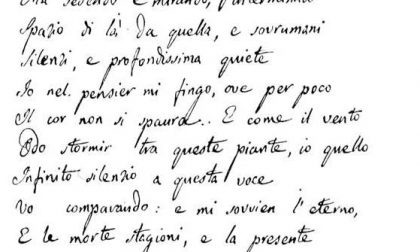 Ma sedendo e mirando, l'interminato
Spazio di là da quella, e sovrumani
Silenzi, e profondissima quiete
Io nel pensier mi fingo, ove per poco
Il cor non si spaura.. E come il vento
Odo stormir tra queste piante, io quello
Infinito silenzio a questa voce
Vo comparando: e mi sovvien l'eterno,
E le morte stagioni, e la presente